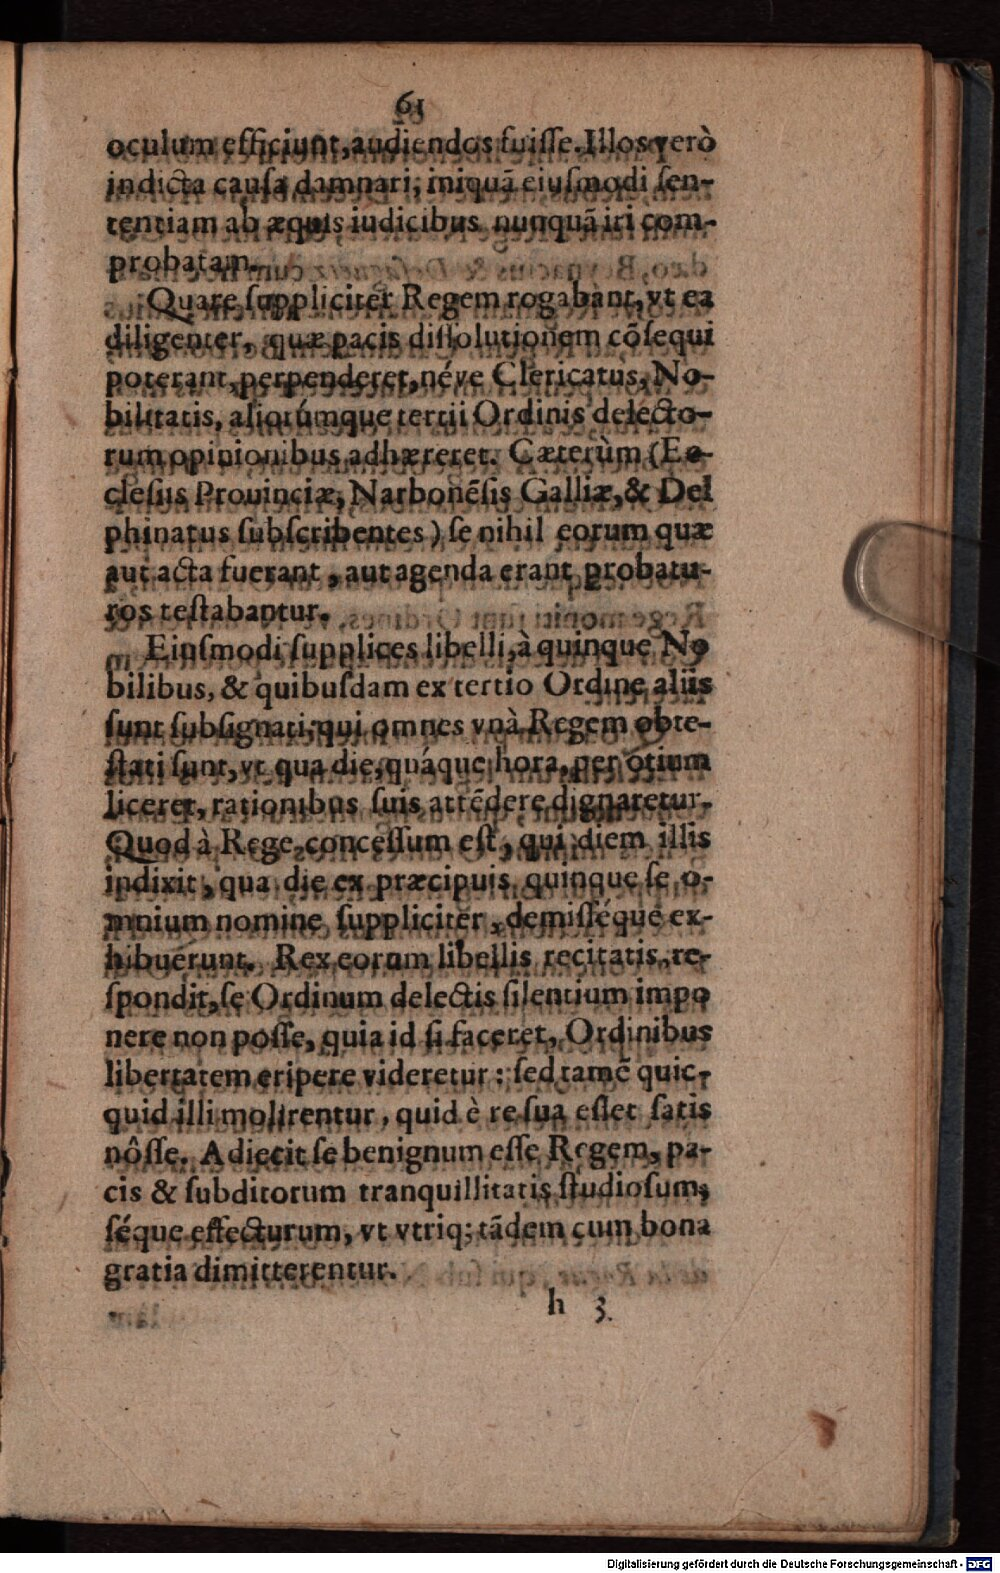 61
oculum efficiunt, audiendos fuiſſe. Illos verò
indicta cauſa damnari; iniquā eiuſmodi ſen-
tentiam ab æquis iudicibus nunquā iri com-
probatam.
Quare ſuppliciter Regem rogabant, vt ea
diligenter, quæ pacis diſſolutionem cōſequi
poterant, perpenderet, néve Clericatus, No-
bilitatis, aliorúmque tertii Ordinis delecto-
rum opinionibus adhæreret. Cæterùm (Ec-
cleſiis Prouinciæ, Narbonēſis Galliæ, & Del
phinatus ſubſcribentes) ſe nihil eorum quæ
aut acta fuerant, aut agenda erant probatu-
ros teſtabantur.
Einſmodi ſupplices libelli, à quinque No
bilibus, & quibuſdam ex tertio Ordine aliis
ſunt ſubſignati, qui omnes vnà Regem obte-
ſtati ſunt, vt qua die, quáque hora, per otium
liceret, rationibus ſuis attēdere dignaretur.
Quod à Rege conceſſum eſt, qui diem illis
indixit, qua die ex præcipuis quinque ſe o-
mnium nomine ſuppliciter, demiſſéque ex-
hibuerunt. Rex eorum libellis recitatis, re-
ſpondit, ſe Ordinum delectis ſilentium impo
nere non poſſe, quia id ſi faceret, Ordinibus
libertatem eripere videretur: ſed tamē quic-
quid illi molirentur, quid è re ſua eſſet ſatis
nôſſe. Adiecit ſe benignum eſſe Regem, pa-
cis & ſubditorum tranquillitatis ſtudioſum,
ſéque effecturum, vt vtriq; tādem cum bona
gratia dimitterentur.
h 3.
Digitalisierung gefördert durch die Deutsche Forschungsgemeinschaft - DFG